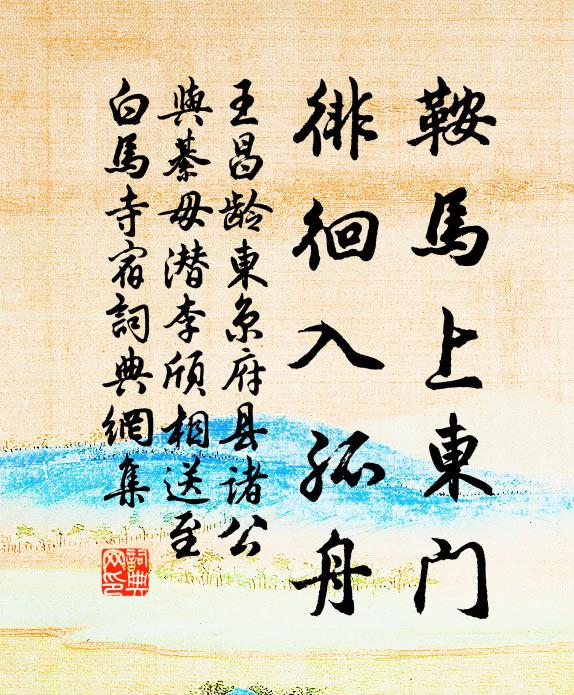 鞍馬上東門
徘徊入孤舟
王昌龄東京府县諸公
與綦毋潜李颀相送至
白馬寺宿詞典網集
詞典
网印